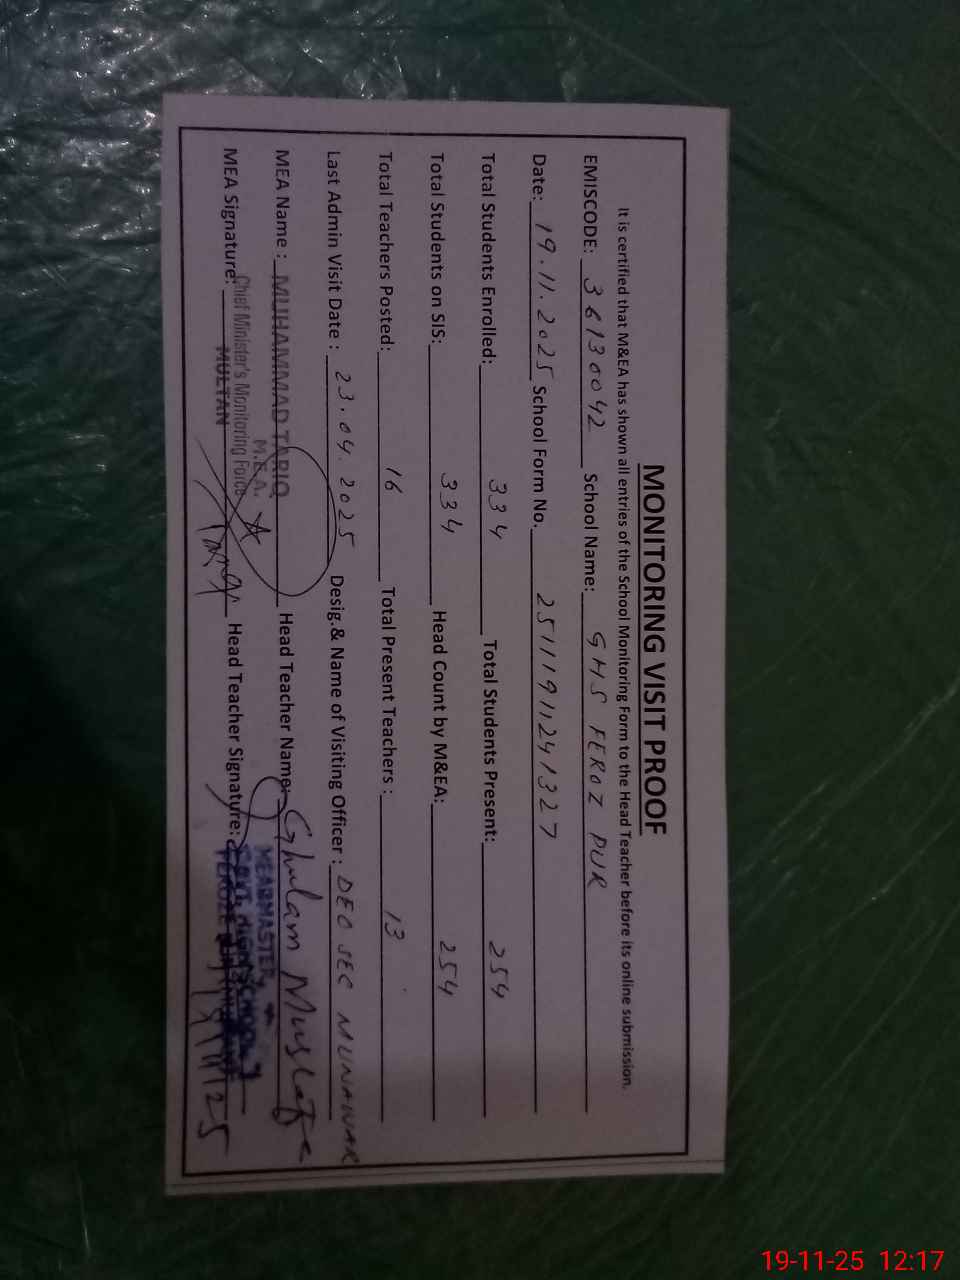 MONITORING VISIT PROOF
It is certified that M&EA has shown all entries of the School Monitoring Form to the Head Teacher before its online submission.
EMISCODE: 36130042 School Name: GHS FEROZ PUR
Date: 19.11.2025 School Form No. 25111911241327
Total Students Enrolled: 334 Total Students Present: 254
Total Students on SIS: 334 Head Count by M&EA: 254
Total Teachers Posted: 16 Total Present Teachers : 13
Last Admin Visit Date : 23.04.2025 Desig.& Name of Visiting Officer : DEO SEC MUNAWAR
MEA Name : MUHAMMAD TARIQ Head Teacher Name: Ghulam Mustafa
M.E.A. HEADMASTER
Chief Minister's Monitoring Force GOVT. HIGH SCHOOL
MEA Signature: MULTAN Head Teacher Signature:
19-11-25 12:17